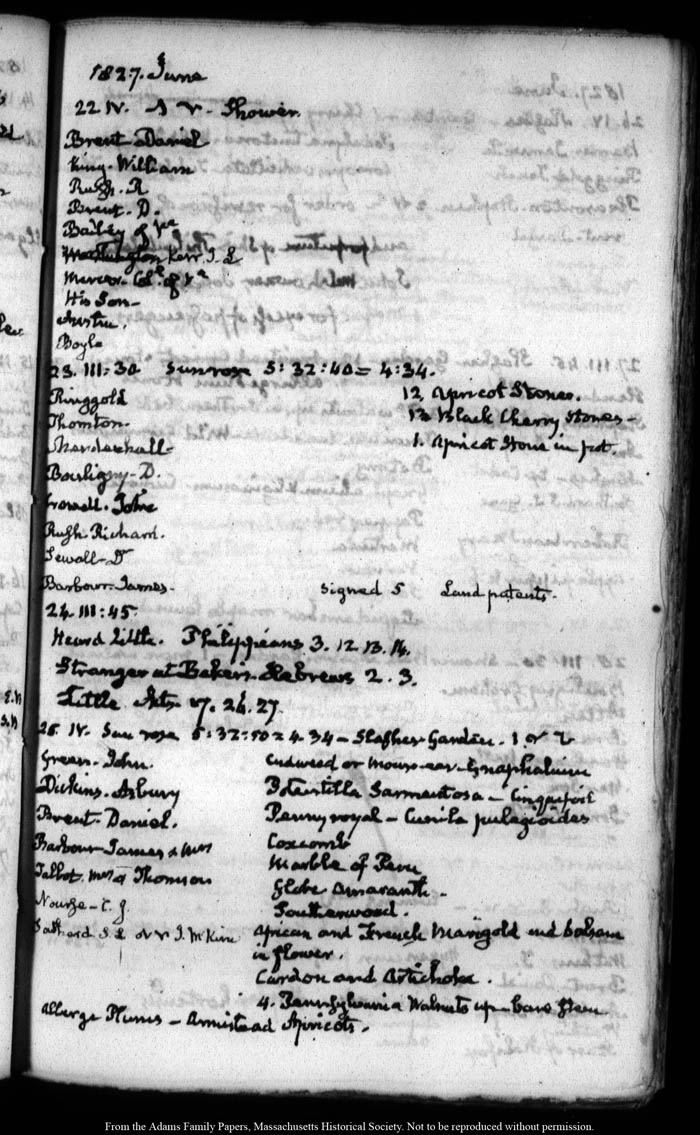 1827. June
22 IV. Shower.
Brent Daniel
King. William
Rush. R
Brent. D.
Bailey
Washington Kerr. J. L
Mercer. 
His Son-
Boyle
23. III:30 Sun rose 5:32:40 = 4:34.
Ringgold 12 Apricot Stones.
Thornton. 13 Black Cherry Stones-
Mendenhall- 1. Apricot Stone in pot.
Bouligny- D.
Lowell. John
Rush Richard.
Sewall- D
Barbour- James- Signed 5 Land patents.
24. III:45.
Heard Little. Philippians 3. 12. 13. 14.
Stranger at Baker's. Hebrews 2. 3.
Little. Acts 17. 26. 27.
25. IV. Sun rose 5:32:50 = 4.34 - Garden. 1. & 2
Green. John. Cudweed or Mouse-ear- Gnaphalium
Dickins. Asbury Potentilla Sarmentosa - Cinquefoil
Brent Daniel. Pennyroyal - Cunila pulegioides
Barbour- James & Mrs Coxcomb
Talbot. Mrs & Thomson Marble of Peru
Globe Amaranth-
Nourse- C. J. Southernwood.
Southard S. L African and French Marigold and balsam
in flower.
Cardon and Artichoke.
4. Pennsylvania Walnuts up-
Plums - Armistead Apricots.
From the Adams Family Papers, Massachusetts Historical Society. Not to be reproduced without permission.